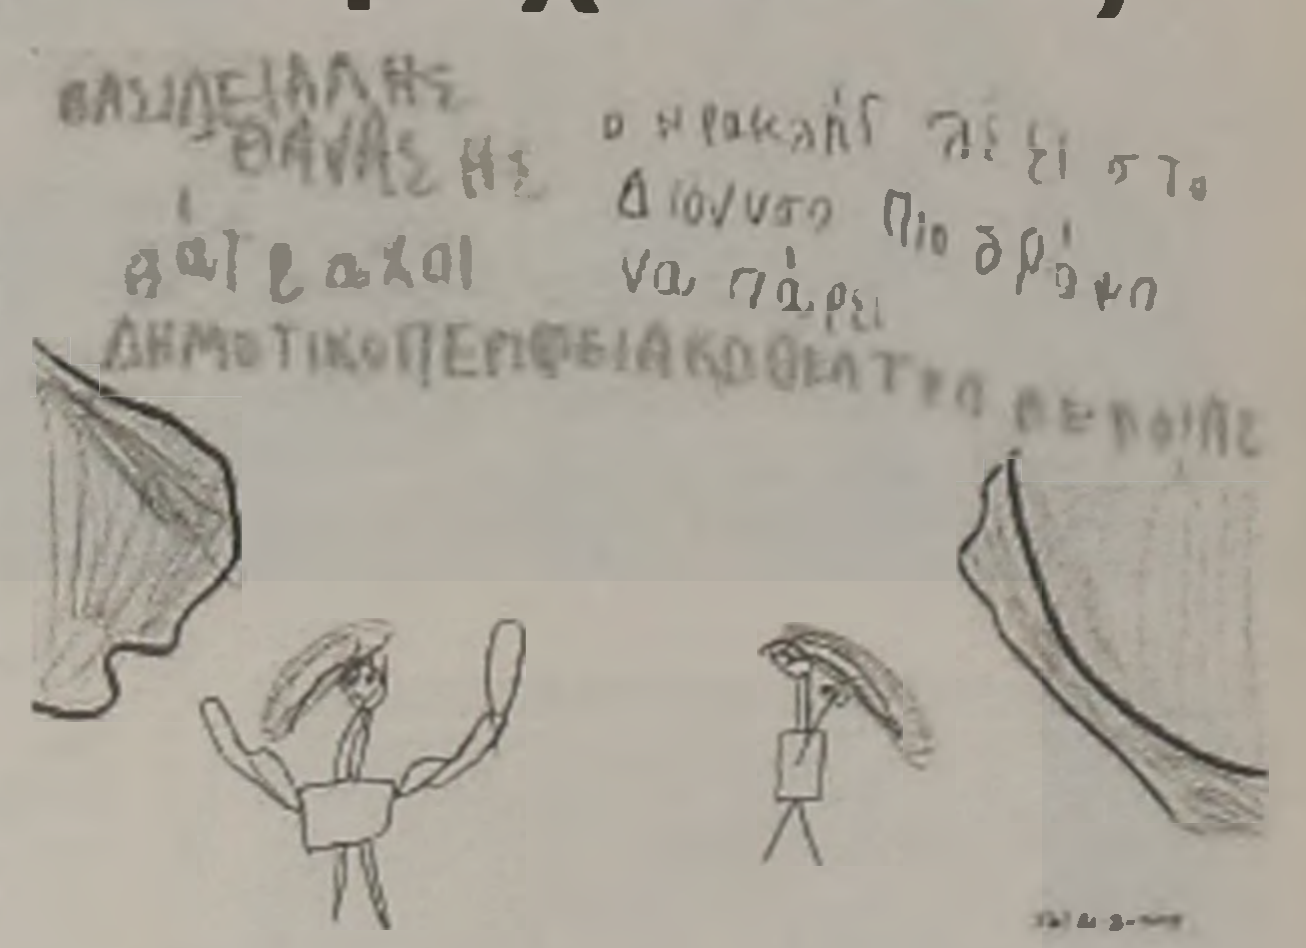 ΒΑΣΙΛΕΙΑΔΗΣ
ΘΑΝΑΣΗΣ
βάτραχοι
ο Ηρακλής λέει στο
Διόνυσο πιο δρόμο
να πάρει
ΔΗΜΟΤΙΚΟ ΠΕΡΙΦΕΙΑΚΟ ΘΕΑΤΡΟ ΒΕΡΟΙΑΣ